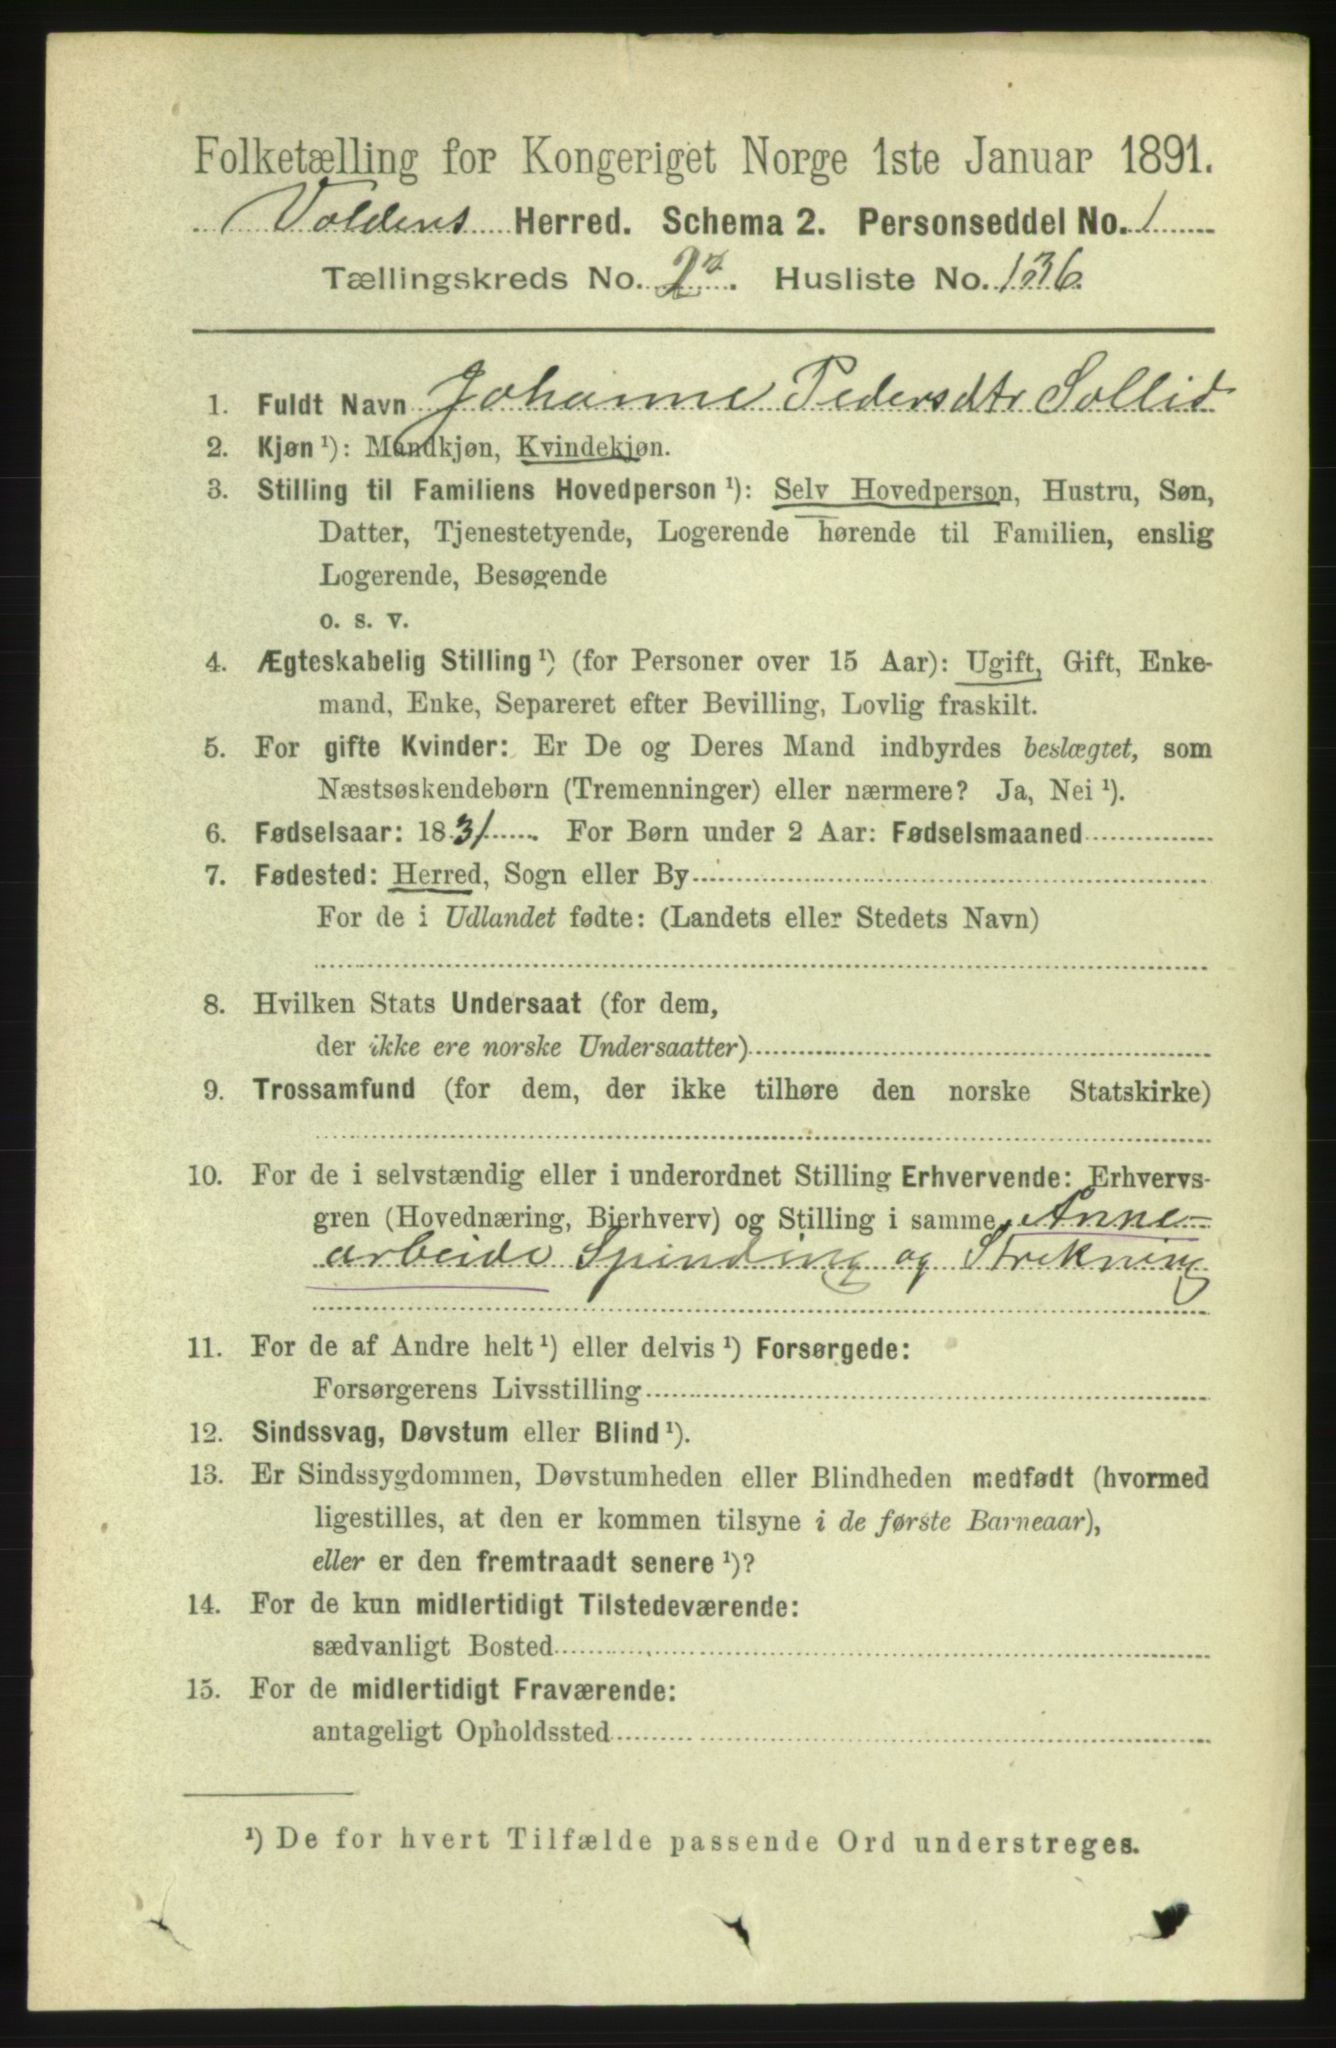 Folketælling for Kongeriget Norge 1ste Januar 1891.
Voldens Herred. Schema 2. Personseddel No. 1
Tællingskreds No. 2a. Husliste No. 136
1. Fuldt Navn Johanne Pedersdtr Sollid
2. Kjøn ¹): Mandkjøn, Kvindekjøn.
3. Stilling til Familiens Hovedperson ¹): Selv Hovedperson, Hustru, Søn,
Datter, Tjenestetyende, Logerende hørende til Familien, enslig
Logerende, Besøgende
o. s. v.
4. Ægteskabelig Stilling ¹) (for Personer over 15 Aar): Ugift, Gift, Enke-
mand, Enke, Separeret efter Bevilling, Lovlig fraskilt.
5. For gifte Kvinder: Er De og Deres Mand indbyrdes beslægtet, som
Næstsøskendebørn (Tremenninger) eller nærmere? Ja, Nei ¹).
6. Fødselsaar: 1831 For Børn under 2 Aar: Fødselsmaaned
7. Fødested: Herred, Sogn eller By
For de i Udlandet fødte: (Landets eller Stedets Navn)
8. Hvilken Stats Undersaat (for dem,
der ikke ere norske Undersaatter)
9. Trossamfund (for dem, der ikke tilhøre den norske Statskirke)
10. For de i selvstændig eller i underordnet Stilling Erhvervende: Erhvervs-
gren (Hovednæring, Bierhverv) og Stilling i samme Anne-
arbeide Spinding og Strekning
11. For de af Andre helt ¹) eller delvis ¹) Forsørgede:
Forsørgerens Livsstilling
12. Sindssvag, Døvstum eller Blind ¹).
13. Er Sindssygdommen, Døvstumheden eller Blindheden medfødt (hvormed
ligestilles, at den er kommen tilsyne i de første Barneaar),
eller er den fremtraadt senere ¹)?
14. For de kun midlertidigt Tilstedeværende:
sædvanligt Bosted
15. For de midlertidigt Fraværende:
antageligt Opholdssted
¹) De for hvert Tilfælde passende Ord understreges.